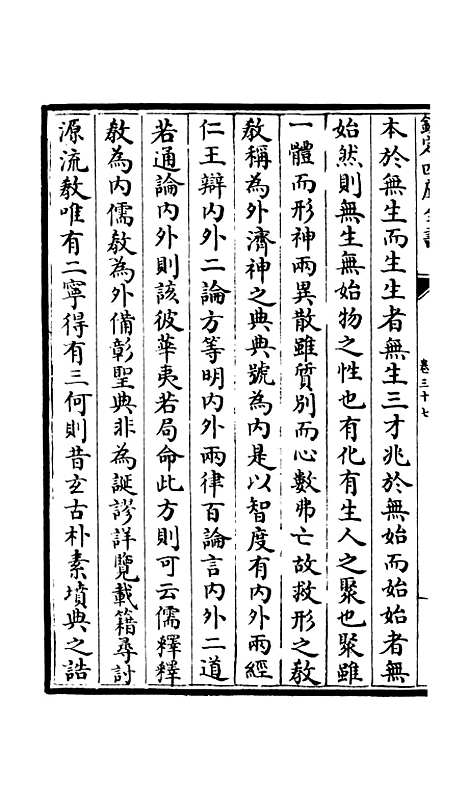 欽定四庫全書
卷三十七
本於無生而生生者無生三才兆於無始而始始者無
始然則無生無始物之性也有化有生人之聚也聚雖
一體而形神兩異散雖質別而心數弗亡故救形之敎
敎稱為外濟神之典典號為内是以智度有内外兩經
仁王辯内外二論方等明内外兩律百論言内外二道
若通論内外則該彼華夷若局命此方則可云儒釋釋
敎為内儒敎為外備彰聖典非為誕謬詳覽載籍尋討
源流敎唯有二寧得有三何則昔𤣥古朴素墳典之誥